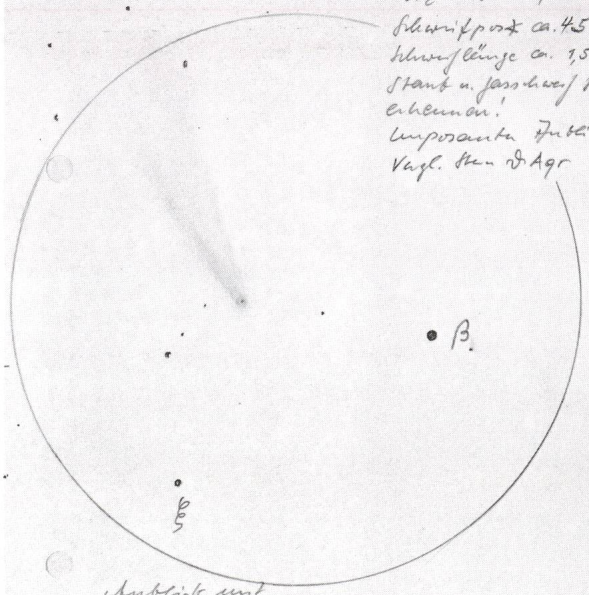 Schweifpos∡ ca. 45
Schweiflänge ca. 1,5
Staub u. Gasschweif
erkennen!
Imposanter Anbli
Vergl. Stern ϑ Aqr
β
ξ
Anblick mit